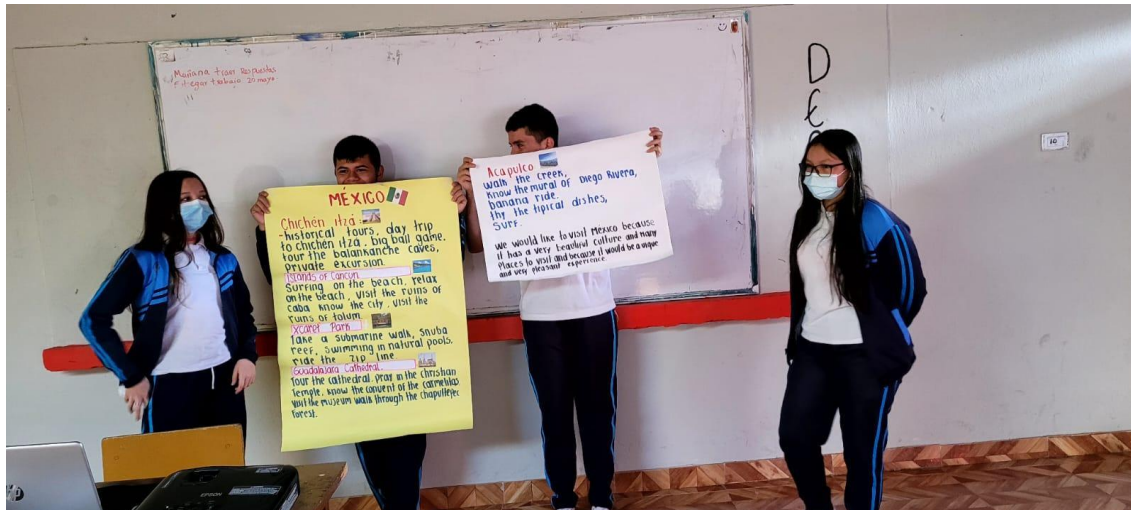 Mañana traer Respuestas
Entegar trabajo 20 mayo
11
MÉXICO
Chichén itzá
-historical tours, day trip
to chichén itzá, big ball game.
tour the balankanche caves,
private excursion.
Islands of Cancun
Surfing on the beach, relax
on the beach, visit the ruins of
caba know the city, visit the
ruins of tolum
Xcaret Park
Take a submarine walk, Snuba
reef, swimming in natural pools.
ride the zip line
Guadalajara Cathedral.
Tour the cathedral, pray in the christian
Temple, know the convent of the carmelitas
visit the museum walk through the chapultepec
Forest.
Acapulco
Walk the creek,
Know the mural of Diego Rivera,
banana ride.
thy the tipical dishes,
Surf.
We would like to visit México because
it has a very beautiful culture and many
Places to visit and because it would be a unique
and very pleasant experience.
DE
10
hp
EPSON